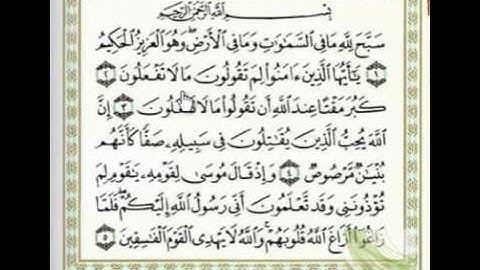 بِسْمِ ٱللَّهِ ٱلرَّحْمَٰنِ ٱلرَّحِيمِ
سَبَّحَ لِلَّهِ مَا فِى ٱلسَّمَٰوَٰتِ وَمَا فِى ٱلْأَرْضِ ۖ وَهُوَ ٱلْعَزِيزُ ٱلْحَكِيمُ
١ يَٰٓأَيُّهَا ٱلَّذِينَ ءَامَنُوا۟ لِمَ تَقُولُونَ مَا لَا تَفْعَلُونَ ٢
كَبُرَ مَقْتًا عِندَ ٱللَّهِ أَن تَقُولُوا۟ مَا لَا تَفْعَلُونَ ٣ إِنَّ
ٱللَّهَ يُحِبُّ ٱلَّذِينَ يُقَٰتِلُونَ فِى سَبِيلِهِۦ صَفًّا كَأَنَّهُم
بُنْيَٰنٌ مَّرْصُوصٌ ٤ وَإِذْ قَالَ مُوسَىٰ لِقَوْمِهِۦ يَٰقَوْمِ لِمَ
تُؤْذُونَنِى وَقَد تَّعْلَمُونَ أَنِّى رَسُولُ ٱللَّهِ إِلَيْكُمْ ۖ فَلَمَّا
زَاغُوٓا۟ أَزَاغَ ٱللَّهُ قُلُوبَهُمْ ۚ وَٱللَّهُ لَا يَهْدِى ٱلْقَوْمَ ٱلْفَٰسِقِينَ ٥